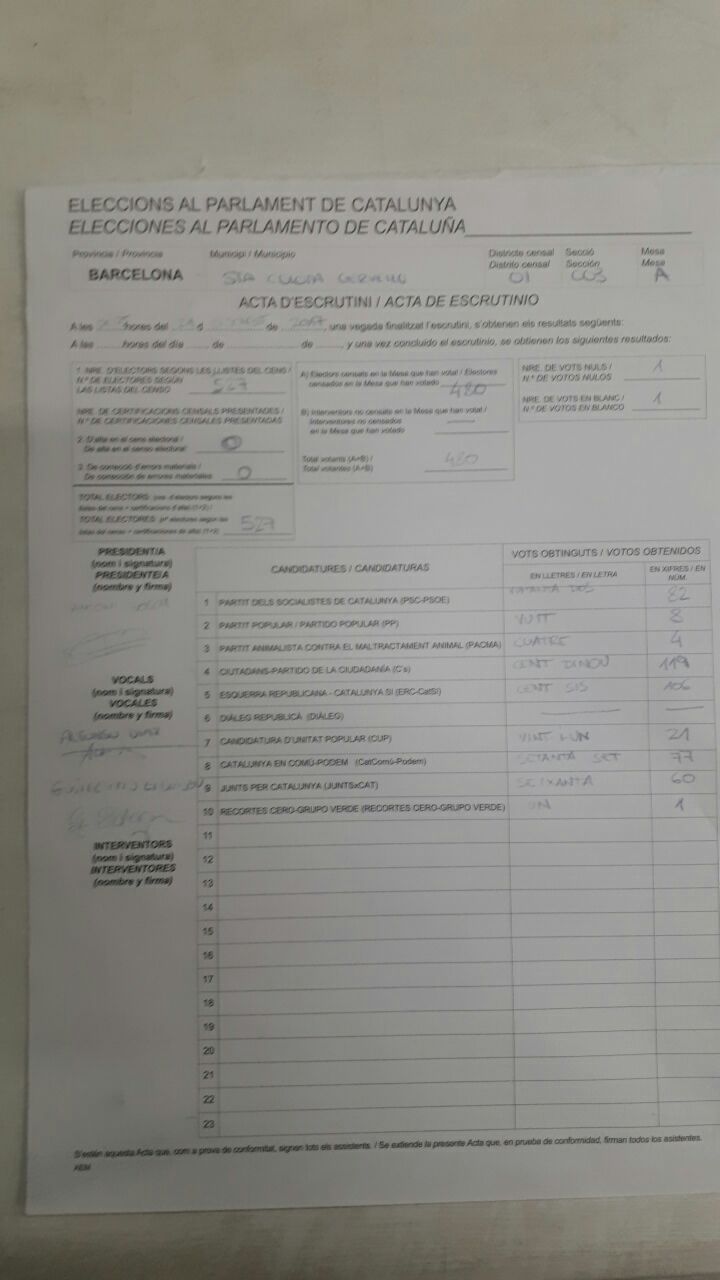 ELECCIONS AL PARLAMENT DE CATALUNYA
ELECCIONES AL PARLAMENTO DE CATALUÑA
Província / Provincia Municipi / Municipio Districte censal Secció Mesa
Distrito censal Sección Mesa
BARCELONA STA 01 003 A
ACTA D'ESCRUTINI / ACTA DE ESCRUTINIO
A les hores del d de 2017, una vegada finalitzat l'escrutini, s'obtenen els resultats següents:
A las horas del día de de , y una vez concluido el escrutinio, se obtienen los siguientes resultados:
1. NRE. D'ELECTORS SEGONS LES LLISTES DEL CENS /
Nº DE ELECTORES SEGÚN
LAS LISTAS DEL CENSO 527
NRE. DE CERTIFICACIONS CENSALS PRESENTADES /
Nº DE CERTIFICACIONES CENSALES PRESENTADAS
2. D'alta en el cens electoral /
De alta en el censo electoral 0
3. De correcció d'errors materials /
De corrección de errores materiales 0
TOTAL ELECTORS:
TOTAL ELECTORES 527
A) Electors censats en la Mesa que han votat / Electores
censados en la Mesa que han votado 480
B) Interventors no censats en la Mesa que han votat /
Interventores no censados
en la Mesa que han votado —
Total votants (A+B) /
Total votantes (A+B) 480
NRE. DE VOTS NULS / 1
Nº DE VOTOS NULOS
NRE. DE VOTS EN BLANC / 1
Nº DE VOTOS EN BLANCO
PRESIDENT/A
(nom i signatura)
PRESIDENTE/A
(nombre y firma)
VOCALS
(nom i signatura)
VOCALES
(nombre y firma)
INTERVENTORS
(nom i signatura)
INTERVENTORES
(nombre y firma)
CANDIDATURES / CANDIDATURAS VOTS OBTINGUTS / VOTOS OBTENIDOS
EN LLETRES / EN LETRA EN XIFRES / EN NÚM.
1 PARTIT DELS SOCIALISTES DE CATALUNYA (PSC-PSOE) DOS 82
2 PARTIT POPULAR / PARTIDO POPULAR (PP) VUIT 8
3 PARTIT ANIMALISTA CONTRA EL MALTRACTAMENT ANIMAL (PACMA) CUATRE 4
4 CIUTADANS-PARTIDO DE LA CIUDADANÍA (C's) CENT DINOU 119
5 ESQUERRA REPUBLICANA - CATALUNYA SÍ (ERC-CatSí) CENT SIS 106
6 DIÀLEG REPUBLICÀ (DIÀLEG) — —
7 CANDIDATURA D'UNITAT POPULAR (CUP) VINT I UN 21
8 CATALUNYA EN COMÚ-PODEM (CatComú-Podem) SETANTA SET 77
9 JUNTS PER CATALUNYA (JUNTSxCAT) SEIXANTA 60
10 RECORTES CERO-GRUPO VERDE (RECORTES CERO-GRUPO VERDE) UN 1
11
12
13
14
15
16
17
18
19
20
21
22
23
S'estén aquesta Acta que, com a prova de conformitat, signen tots els assistents. / Se extiende la presente Acta que, en prueba de conformidad, firman todos los asistentes.